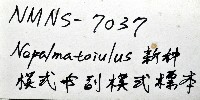 NMNS-7037
Nepalmatoiulus 新种
模式和副模式标本